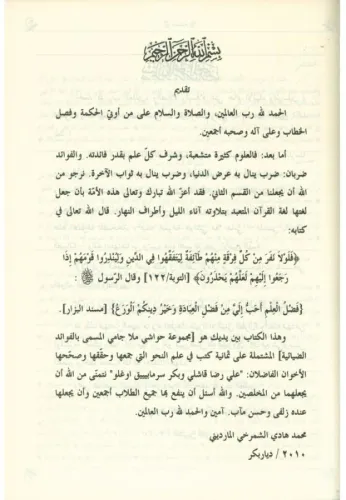 بسم الله الرحمن الرحيم
تقديم
الحمد لله رب العالمين، والصلاة والسلام على من أوتي الحكمة وفصل
الخطاب وعلى آله وصحبه أجمعين.
أما بعد: فالعلوم كثيرة متشعبة، وشرف كلّ علم بقدر فائدته. والفوائد
ضربان: ضرب ينال به عرض الدنيا، وضرب ينال به ثواب الآخرة. نرجو من
الله أن يجعلنا من القسم الثاني. فقد أعزّ الله تبارك وتعالى هذه الأمّة بأن جعل
لغتها لغة القرآن المتعبد بتلاوته آناء الليل وأطراف النهار. قال الله تعالى في
كتابه:
﴿فَلَوْلَا نَفَرَ مِنْ كُلِّ فِرْقَةٍ مِنْهُمْ طَائِفَةٌ لِيَتَفَقَّهُوا فِي الدِّينِ وَلِيُنْذِرُوا قَوْمَهُمْ إِذَا
رَجَعُوا إِلَيْهِمْ لَعَلَّهُمْ يَحْذَرُونَ﴾ [التوبة/١٢٢] وقال الرّسول ﷺ :
{فَضْلُ الْعِلْمِ أَحَبُّ إِلَيَّ مِنْ فَضْلِ الْعِبَادَةِ وَخَيْرُ دِينِكُمُ الْوَرَعُ} [مسند البزار].
وهذا الكتاب بين يديك هو [مجموعة حواشي ملا جامي المسمى بالفوائد
الضيائية] المشتملة على ثمانية كتب في علم النحو التي جمعها وحقّقها وصحّحها
الأخوان الفاضلان: "علي رضا قاشلي وبكر سرمابييق اوغلو" نتمنّى من الله أن
يجعلهما من المخلصين. والله أسئل أن ينفع بها جميع الطلاب أجمعين وأن يجعلها
عنده زلفى وحسن مآب. آمين والحمد لله رب العالمين.
محمد هادي الشمرخي المارديني
٢٠١٠ / دياربكر